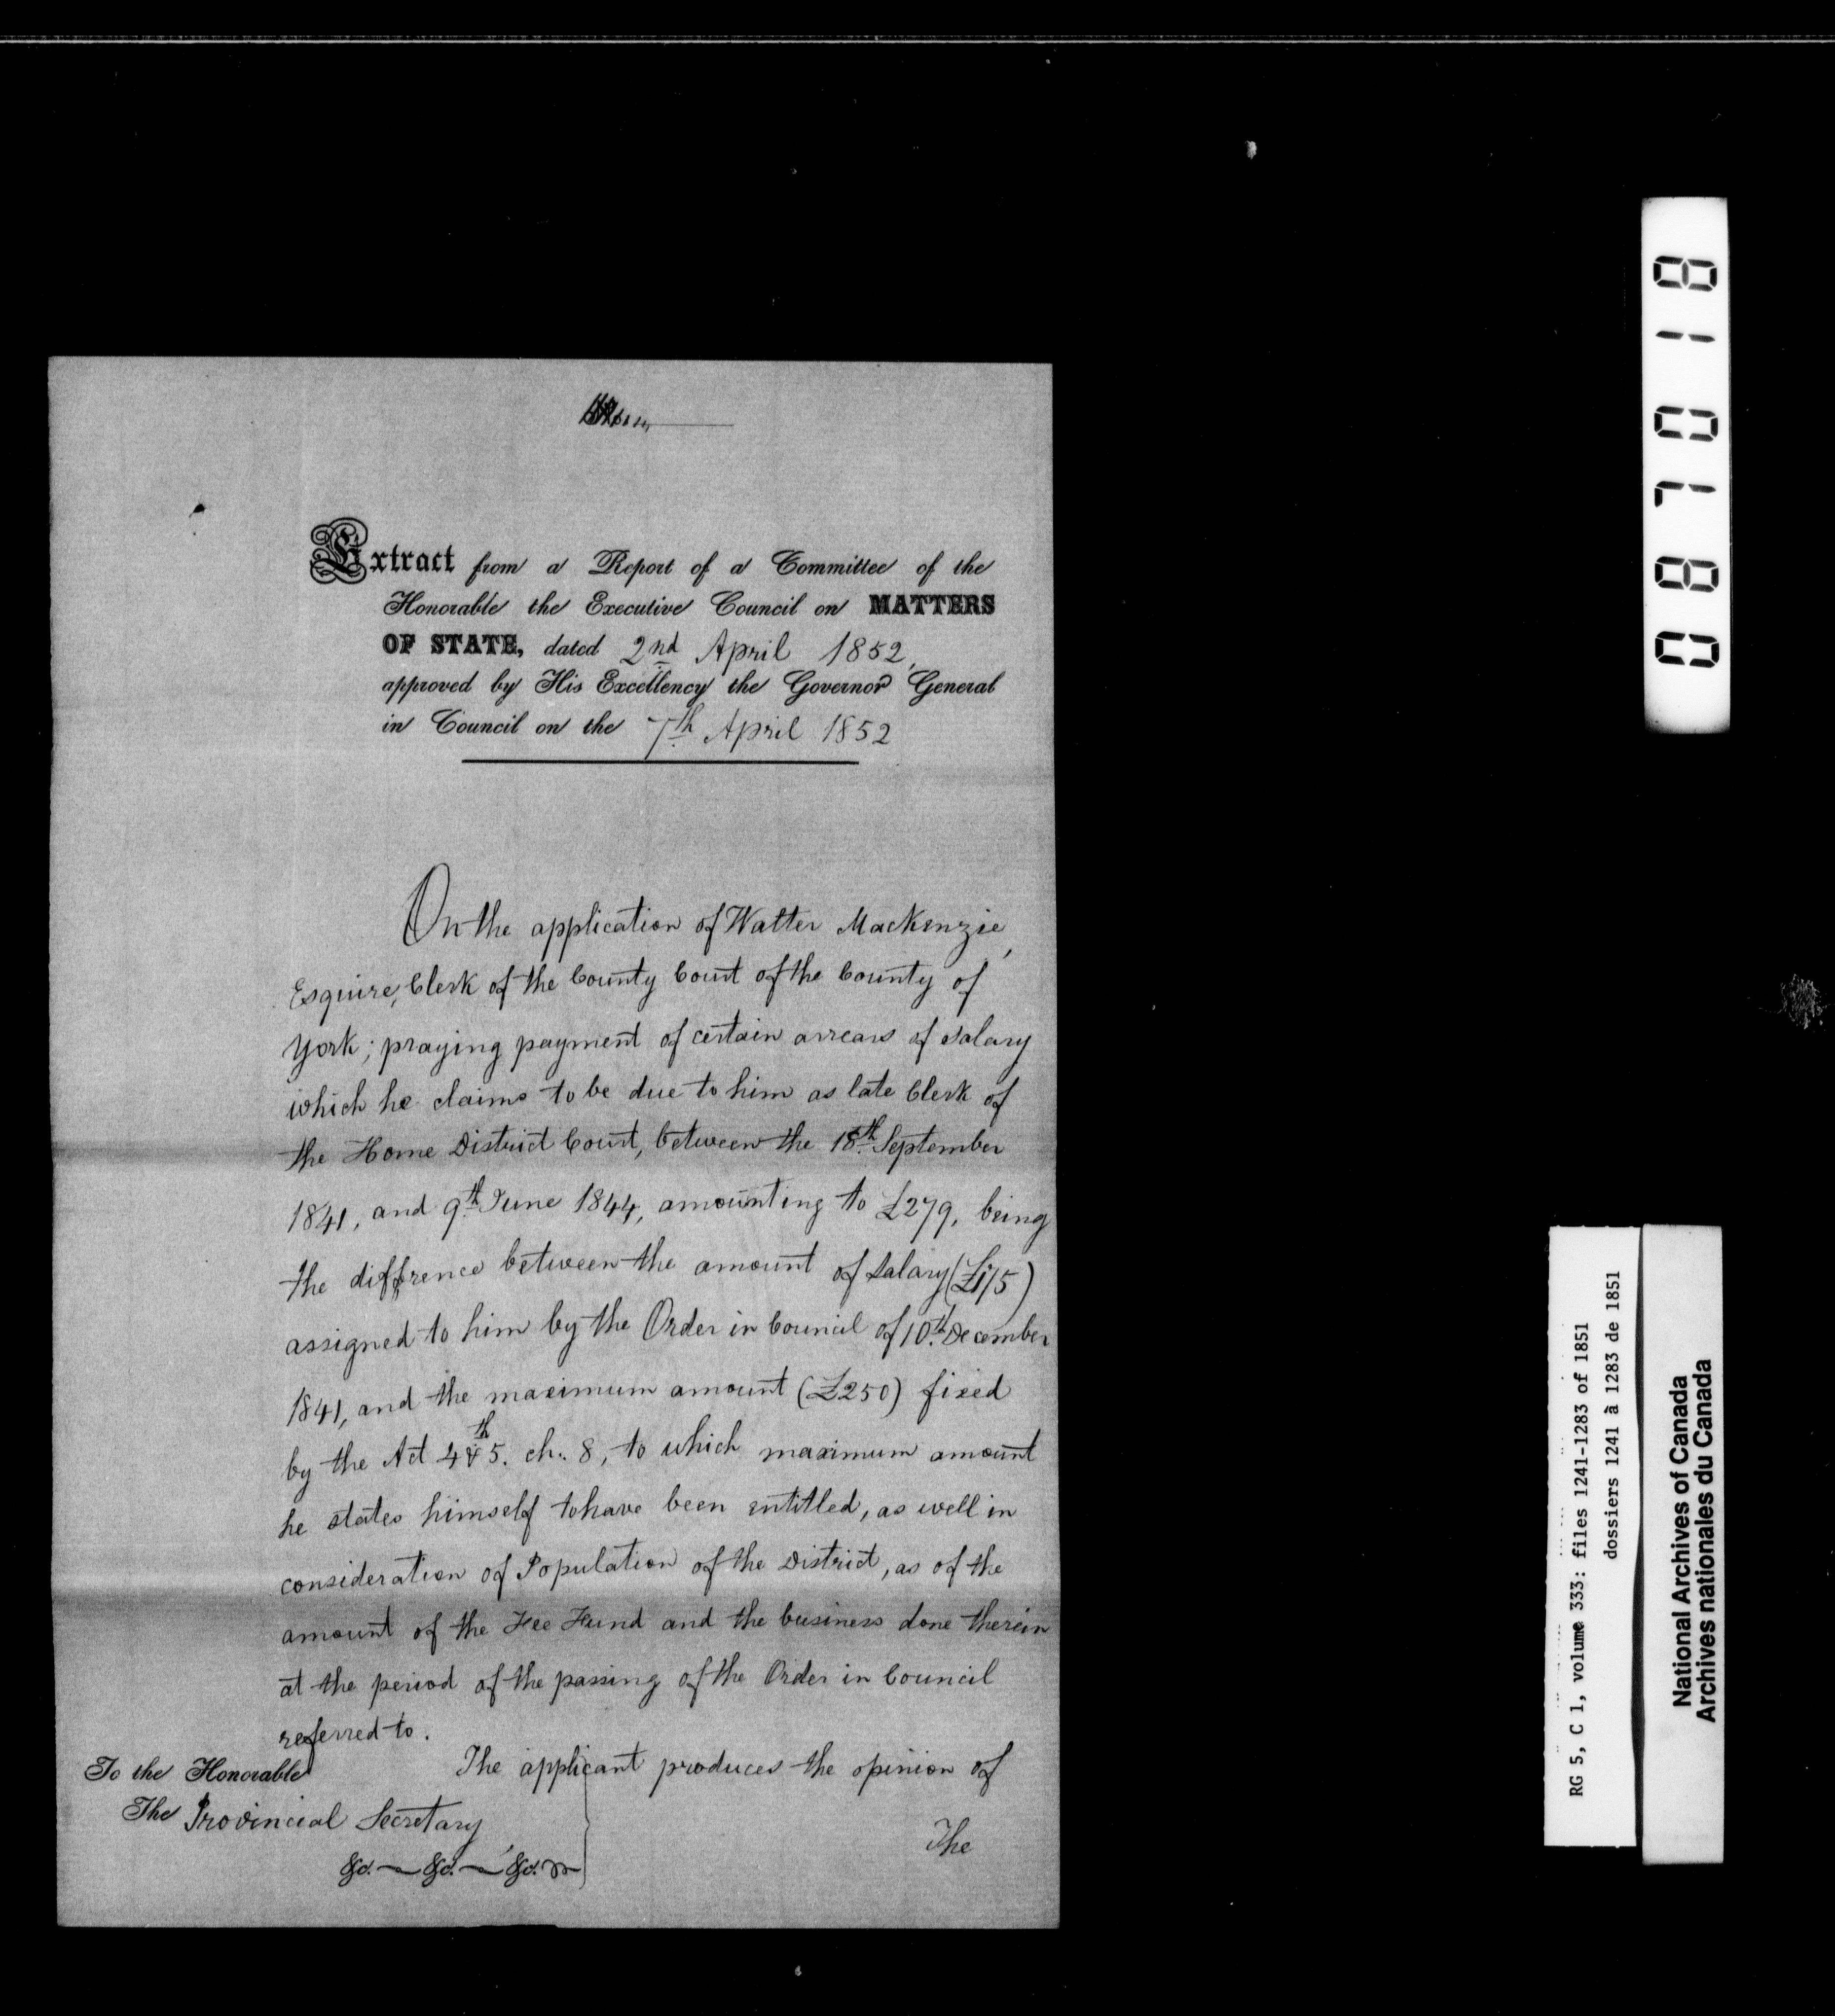 Extract from a Report of a Committee of the
Honorable the Executive Council on MATTERS
OF STATE, dated 2nd April 1852,
approved by His Excellency the Governor General
in Council on the 7th April 1852
On the application of Walter MacKenzie,
Esquire, Clerk of the County Court of the County of
York; praying payment of certain arrears of salary
which he claims to be due to him as late Clerk of
the Home District Court, between the 18th September
1841, and 9th June 1844, amounting to £279, being
the difference between the amount of salary (£175)
assigned to him by the Order in Council of 10th December
1841, and the maximum amount (£250) fixed
by the Act 4th & 5. ch: 8, to which maximum amount
he states himself to have been entitled, as well in
consideration of Population of the District, as of the
amount of the Fee Fund and the business done therein
at the period of the passing of the Order in Council
referred to.
The applicant produces the opinion of
The
To the Honorable
The Provincial Secretary,
&c. &c. &c.
087018
RG 5, C 1, volume 333: files 1241-1283 of 1851
dossiers 1241 à 1283 de 1851
National Archives of Canada
Archives nationales du Canada